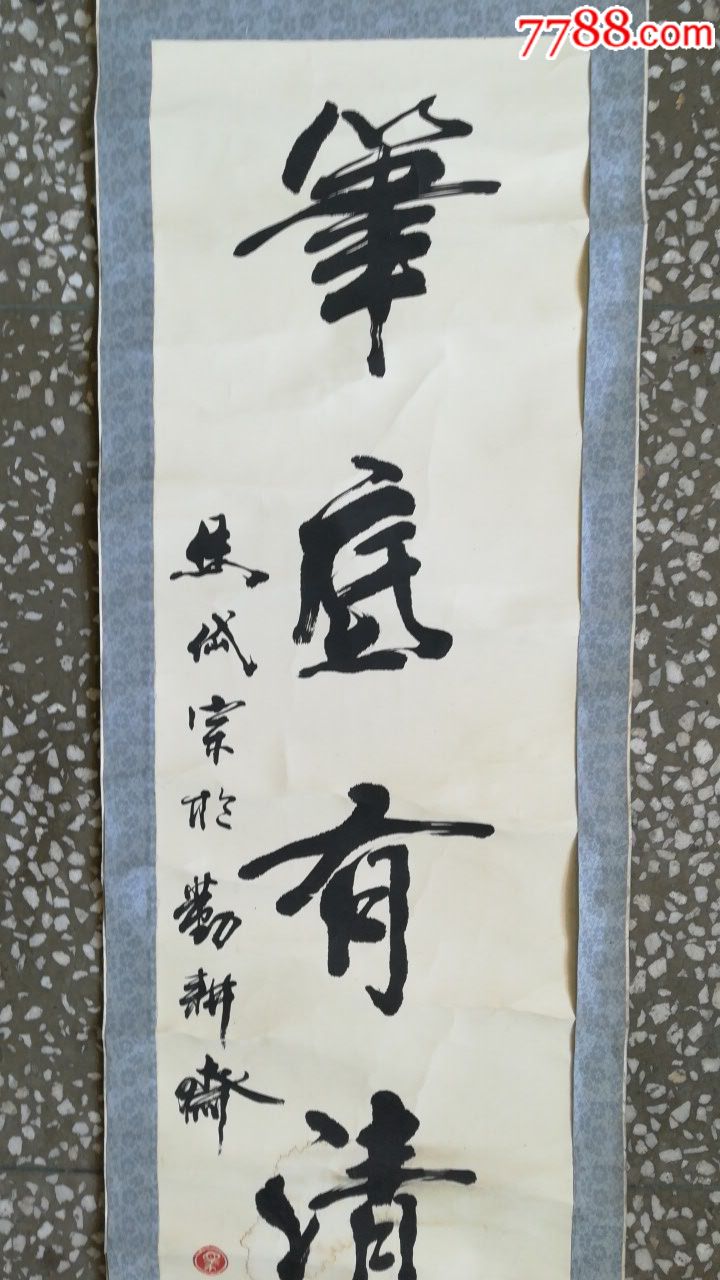 7788.com
筆底有清
岱宗於勤耕齋